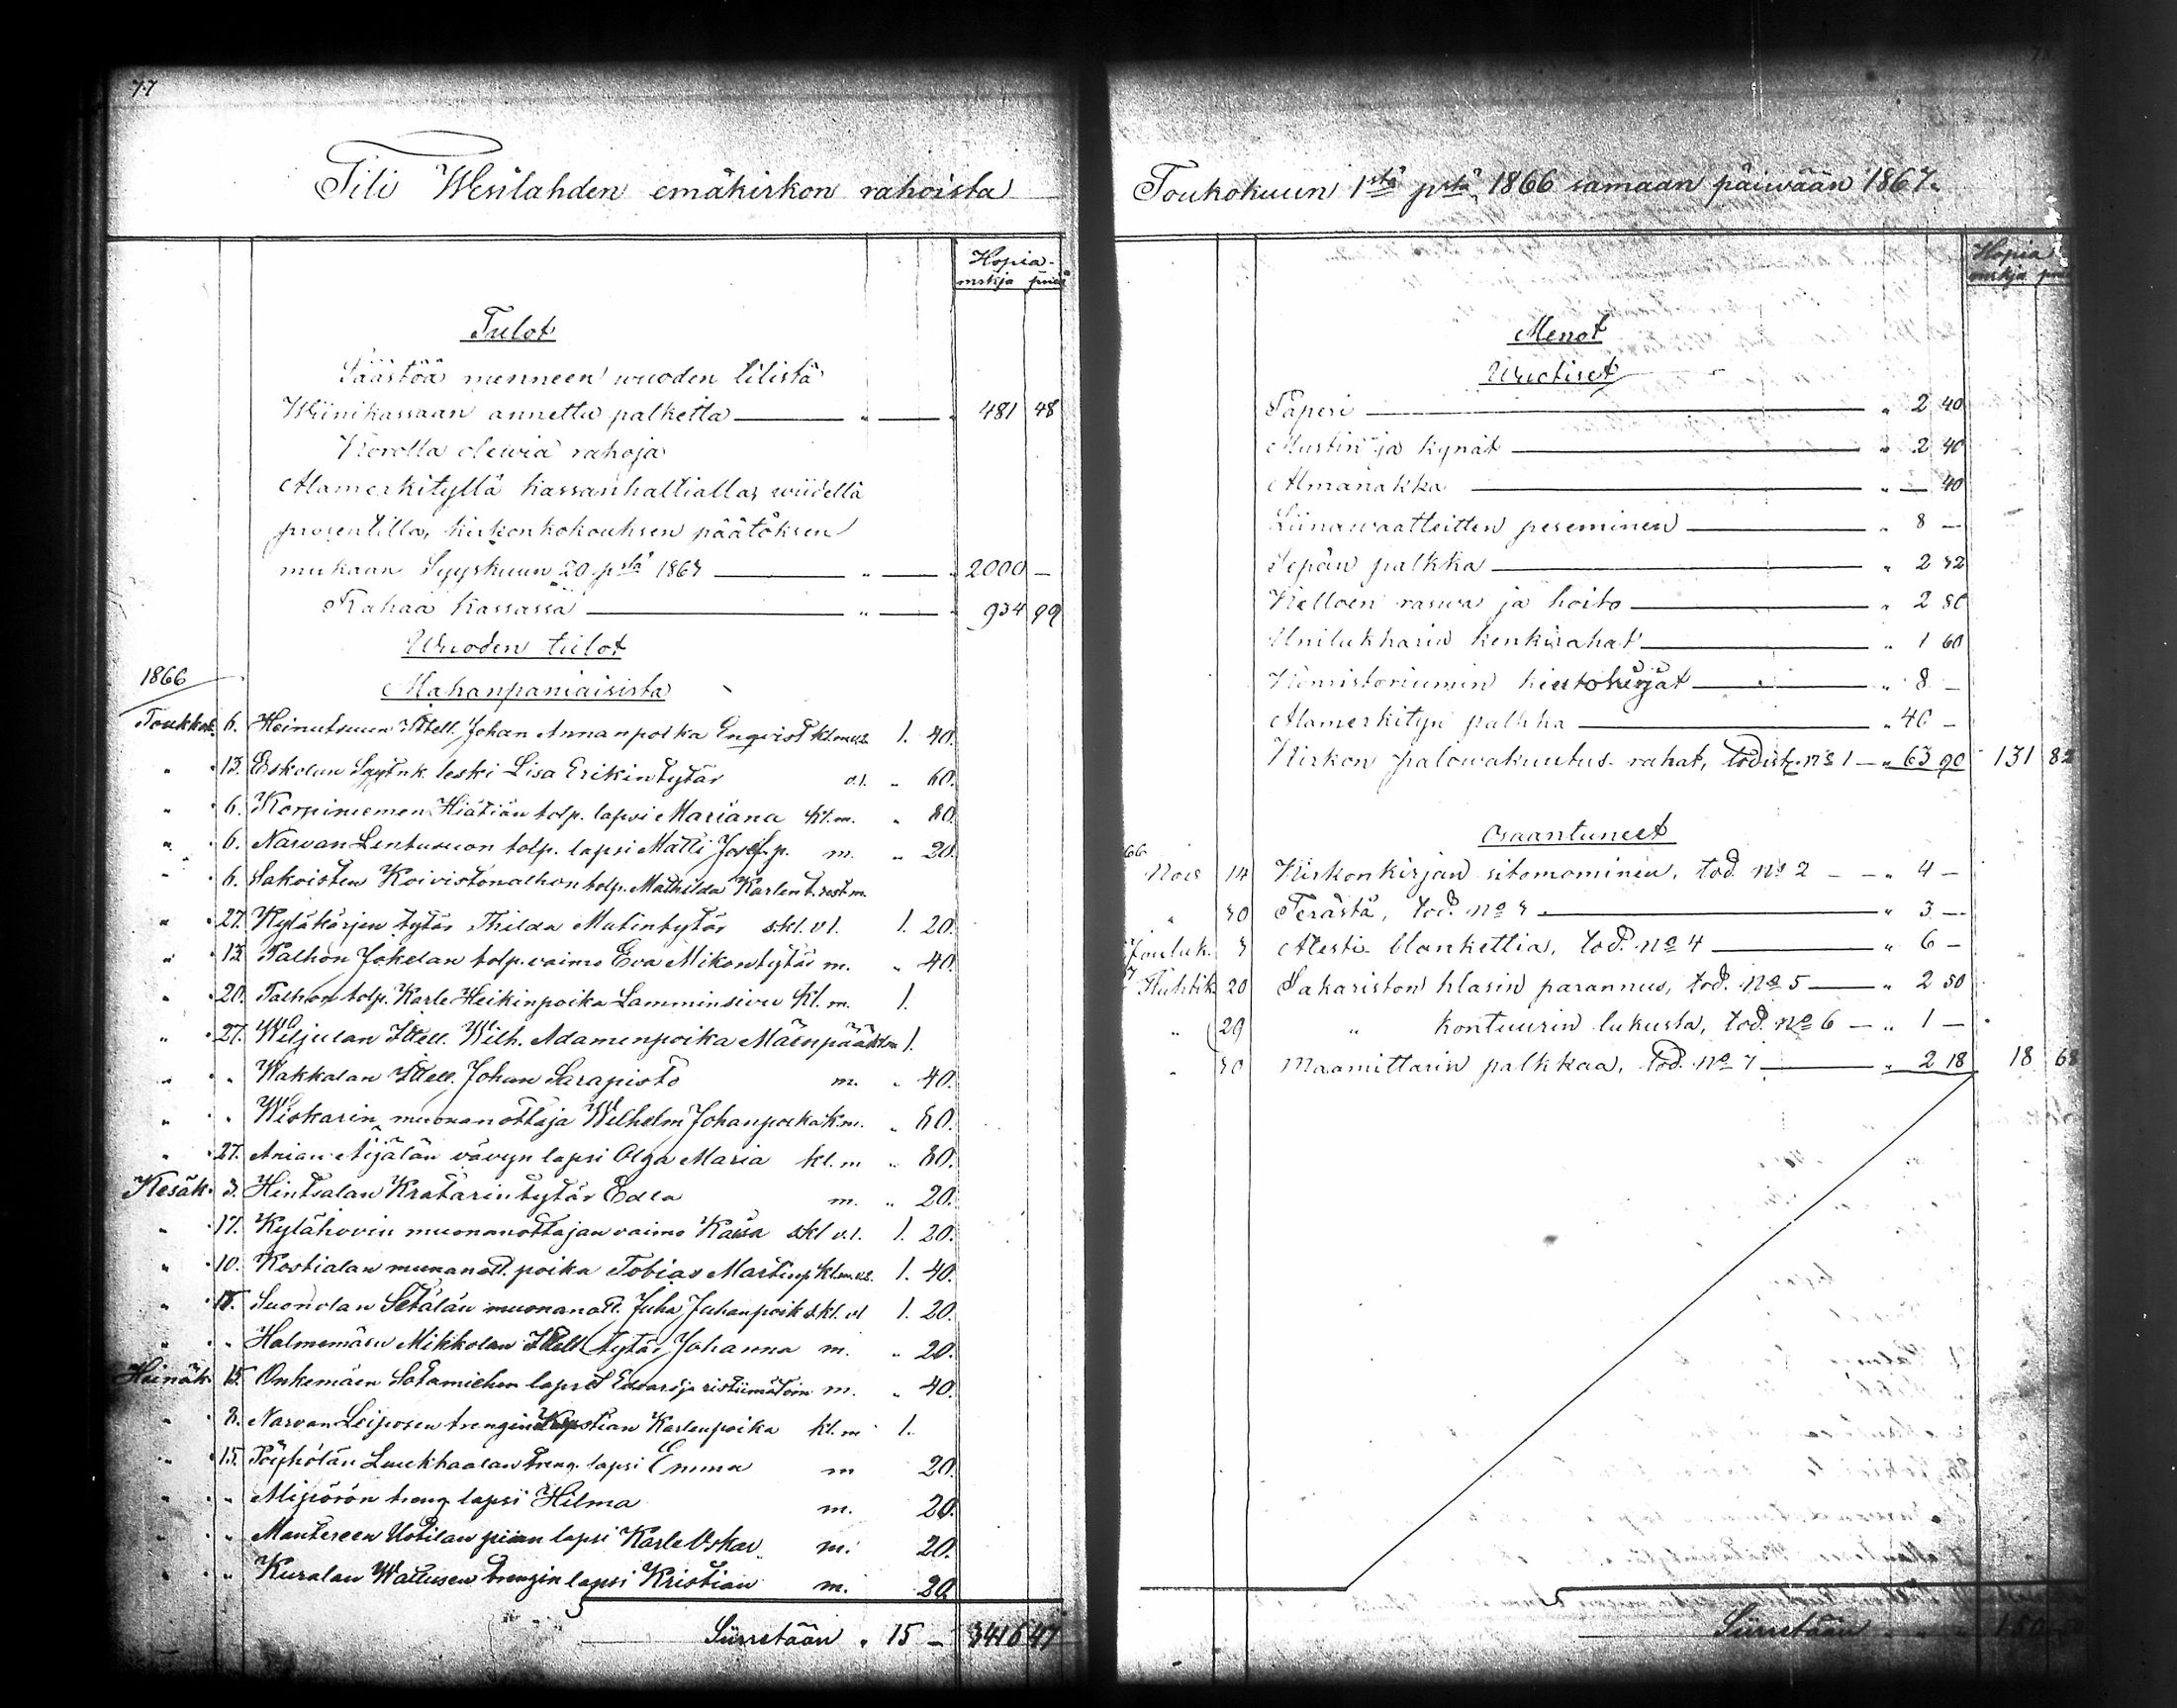 77
Tili Wesilahden emäkirkon rahoista
Hopia-
mrkja pniä
Tulot
Säästöä menneen wuoden tilistä
Wiinikassaan annettu palketta — " — " 481 48
Korolla olewia rahoja
Alamerkityllä kassanhaltialla, wiidellä
prosentilla, kirkonkokouksen päätöksen
mukaan Syyskuun 20 pstä 1863 — " — " 2000 —
Rahaa kassassa — " — " 934 99
Wuoden tulot
1866
Mahanpaniaisista
Toukok. 6. Heinulsuun Itell. Johan Annanpoika Enqvist kl.m.v.l. 1. 40.
" 13. Eskolan leski Lisa Erikintytär v.l. " 60.
" 6. Korpiniemen Hiätiän tolp. lapsi Mariana kl.m. " 80.
" 6. Narvan Lentusuon tolp. lapsi Matti Josef.p. m. " 20.
" 6. Sakoisten Koivistonalhon tolp. Mathilda Karlent.
" 27. Kyläkärjen tytär Thilda Matintytär s.kl. v.l. 1. 20.
" 13. Palhon Jokelan tolp. vaimo Eva Mikontytär m. " 40.
" 20. Palhon tolp. Karle Heikinpoika Lamminsivu kl. m. 1.
" 27. Wiljulan Itell. Wilh. Adamenpoika Mäenpää kl.m 1.
" " Wakkalan Itell. Johan Sarapisto m. " 40.
" " Wiskarin muonanottaja Wilhelm Johanpoika k.m. " 80.
" 27. Anian Äijälän vävyn lapsi Olga Maria kl. m " 80.
Kesäk. 3. Hintsalan Kratarin tytär Edla m. " 20.
" 17. Kylähovin muonanottajan vaimo Kaisa s.kl v.l. 1. 20.
" 10. Kostialan muonanott. poika Tobias Martinp kl.m.v.l. 1. 40.
" 17. Suonolan Setälän muonanott. Juha Juhanpoik s.kl. vl 1. 20.
" " Halmemäen Mikkolan Itell. tytär Johanna m. " 20.
Heinäk. 15. Onkemäen Sotamiehen lapset Edvard ja ristiimätöin m. " 40.
" 8. Narvan Leiposen trengin Kristian Karlenpoika kl. m 1.
" 15. Pöyhölän Luukkaalan treng. lapsi Emma m 20.
" " treng lapsi Hilma m. 20.
" " Mantereen Uotilan piian lapsi Karle Oskar m. 20.
" " Kuralan Wattusen trengin lapsi Kristian m. 20
Siirretään " 15 — 3416 47
Toukokuun 1stä pstä 1866 samaan päiwään 1867.
Hopia
mrkja pniä
Menot
Wuotiset
Paperi — " 2 40
Mustin ja kynät — " 2 40
Almanakka — " — 40
Liinawaatteitten peseminen — " 8 —
Sepän palkka — " 2 32
Kelloen raswa ja hoito — " 2 80
Unilukkarin kenkirahat — " 1 60
Konsistoriumin kiertokirjat — " 8 —
Alamerkityn palkka — " 40 —
Kirkon palowakuutus-rahat, todist. No 1 — " 63 90 131 82
Osaantuneet
66
Nov 14 Kirkonkirjan sitomominen, tod. No 2 — " 4 —
" 30 Terästä, tod. No 3 — " 3 —
Jouluk. 3 Atesti-blankettia, tod. No 4 — " 6 —
7 Huhtik 20 Sakariston klasin parannus, tod. No 5 — " 2 50
" 29 " kontuurin lukusta, tod. No 6 — " 1 —
" 30 Maamittarin palkkaa, tod. No 7 — " 2 18 18 68
Siirretään " " 150